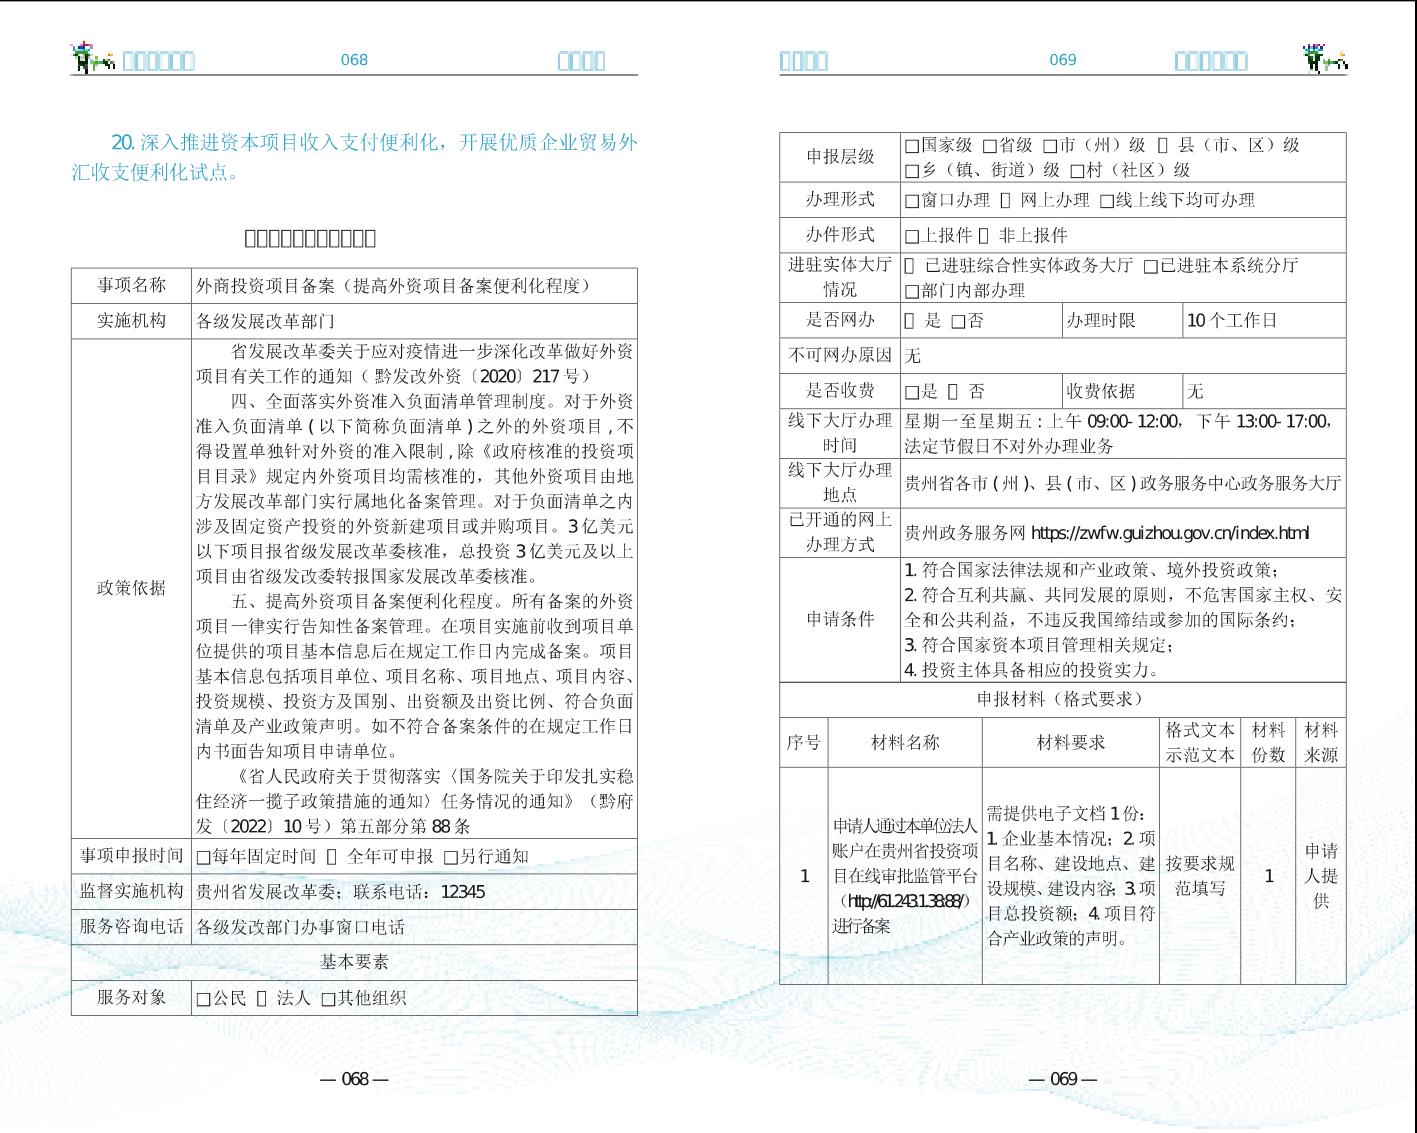 068
20. 深入推进资本项目收入支付便利化，开展优质企业贸易外
汇收支便利化试点。
事项名称 外商投资项目备案（提高外资项目备案便利化程度）
实施机构 各级发展改革部门
政策依据
省发展改革委关于应对疫情进一步深化改革做好外资
项目有关工作的通知（ 黔发改外资〔2020〕217 号）
四、全面落实外资准入负面清单管理制度。对于外资
准入负面清单 ( 以下简称负面清单 ) 之外的外资项目 , 不
得设置单独针对外资的准入限制 , 除《政府核准的投资项
目目录》规定内外资项目均需核准的，其他外资项目由地
方发展改革部门实行属地化备案管理。对于负面清单之内
涉及固定资产投资的外资新建项目或并购项目。3 亿美元
以下项目报省级发展改革委核准，总投资 3 亿美元及以上
项目由省级发改委转报国家发展改革委核准。
五、提高外资项目备案便利化程度。所有备案的外资
项目一律实行告知性备案管理。在项目实施前收到项目单
位提供的项目基本信息后在规定工作日内完成备案。项目
基本信息包括项目单位、项目名称、项目地点、项目内容、
投资规模、投资方及国别、出资额及出资比例、符合负面
清单及产业政策声明。如不符合备案条件的在规定工作日
内书面告知项目申请单位。
《省人民政府关于贯彻落实〈国务院关于印发扎实稳
住经济一揽子政策措施的通知〉任务情况的通知》（黔府
发〔2022〕10 号）第五部分第 88 条
事项申报时间 □每年固定时间 全年可申报 □另行通知
监督实施机构 贵州省发展改革委；联系电话：12345
服务咨询电话 各级发改部门办事窗口电话
基本要素
服务对象 □公民 法人 □其他组织
— 068 —
069
申报层级
□国家级 □省级 □市（州）级 县（市、区）级
□乡（镇、街道）级 □村（社区）级
办理形式 □窗口办理 网上办理 □线上线下均可办理
办件形式 □上报件 非上报件
进驻实体大厅
情况
已进驻综合性实体政务大厅 □已进驻本系统分厅
□部门内部办理
是否网办 是 □否 办理时限 10 个工作日
不可网办原因 无
是否收费 □是 否 收费依据 无
线下大厅办理
时间
星期一至星期五 : 上午 09:00- 12:00， 下午 13:00- 17:00,
法定节假日不对外办理业务
线下大厅办理
地点
贵州省各市 ( 州 )、县 ( 市、区 ) 政务服务中心政务服务大厅
已开通的网上
办理方式
贵州政务服务网 https://zwfw.guizhou.gov.cn/index.html
申请条件
1. 符合国家法律法规和产业政策、境外投资政策；
2. 符合互利共赢、共同发展的原则，不危害国家主权、安
全和公共利益，不违反我国缔结或参加的国际条约；
3. 符合国家资本项目管理相关规定；
4. 投资主体具备相应的投资实力。
申报材料（格式要求）
序号 材料名称 材料要求
格式文本
示范文本
材料
份数
材料
来源
1
申请人通过本单位法人
账户在贵州省投资项
目在线审批监管平台
（http://61.243.1.38:88/）
进行备案
需提供电子文档 1 份：
1. 企业基本情况；2. 项
目名称、建设地点、建
设规模、建设内容；3. 项
目总投资额；4. 项目符
合产业政策的声明。
按要求规
范填写
1
申请
人提
供
— 069 —